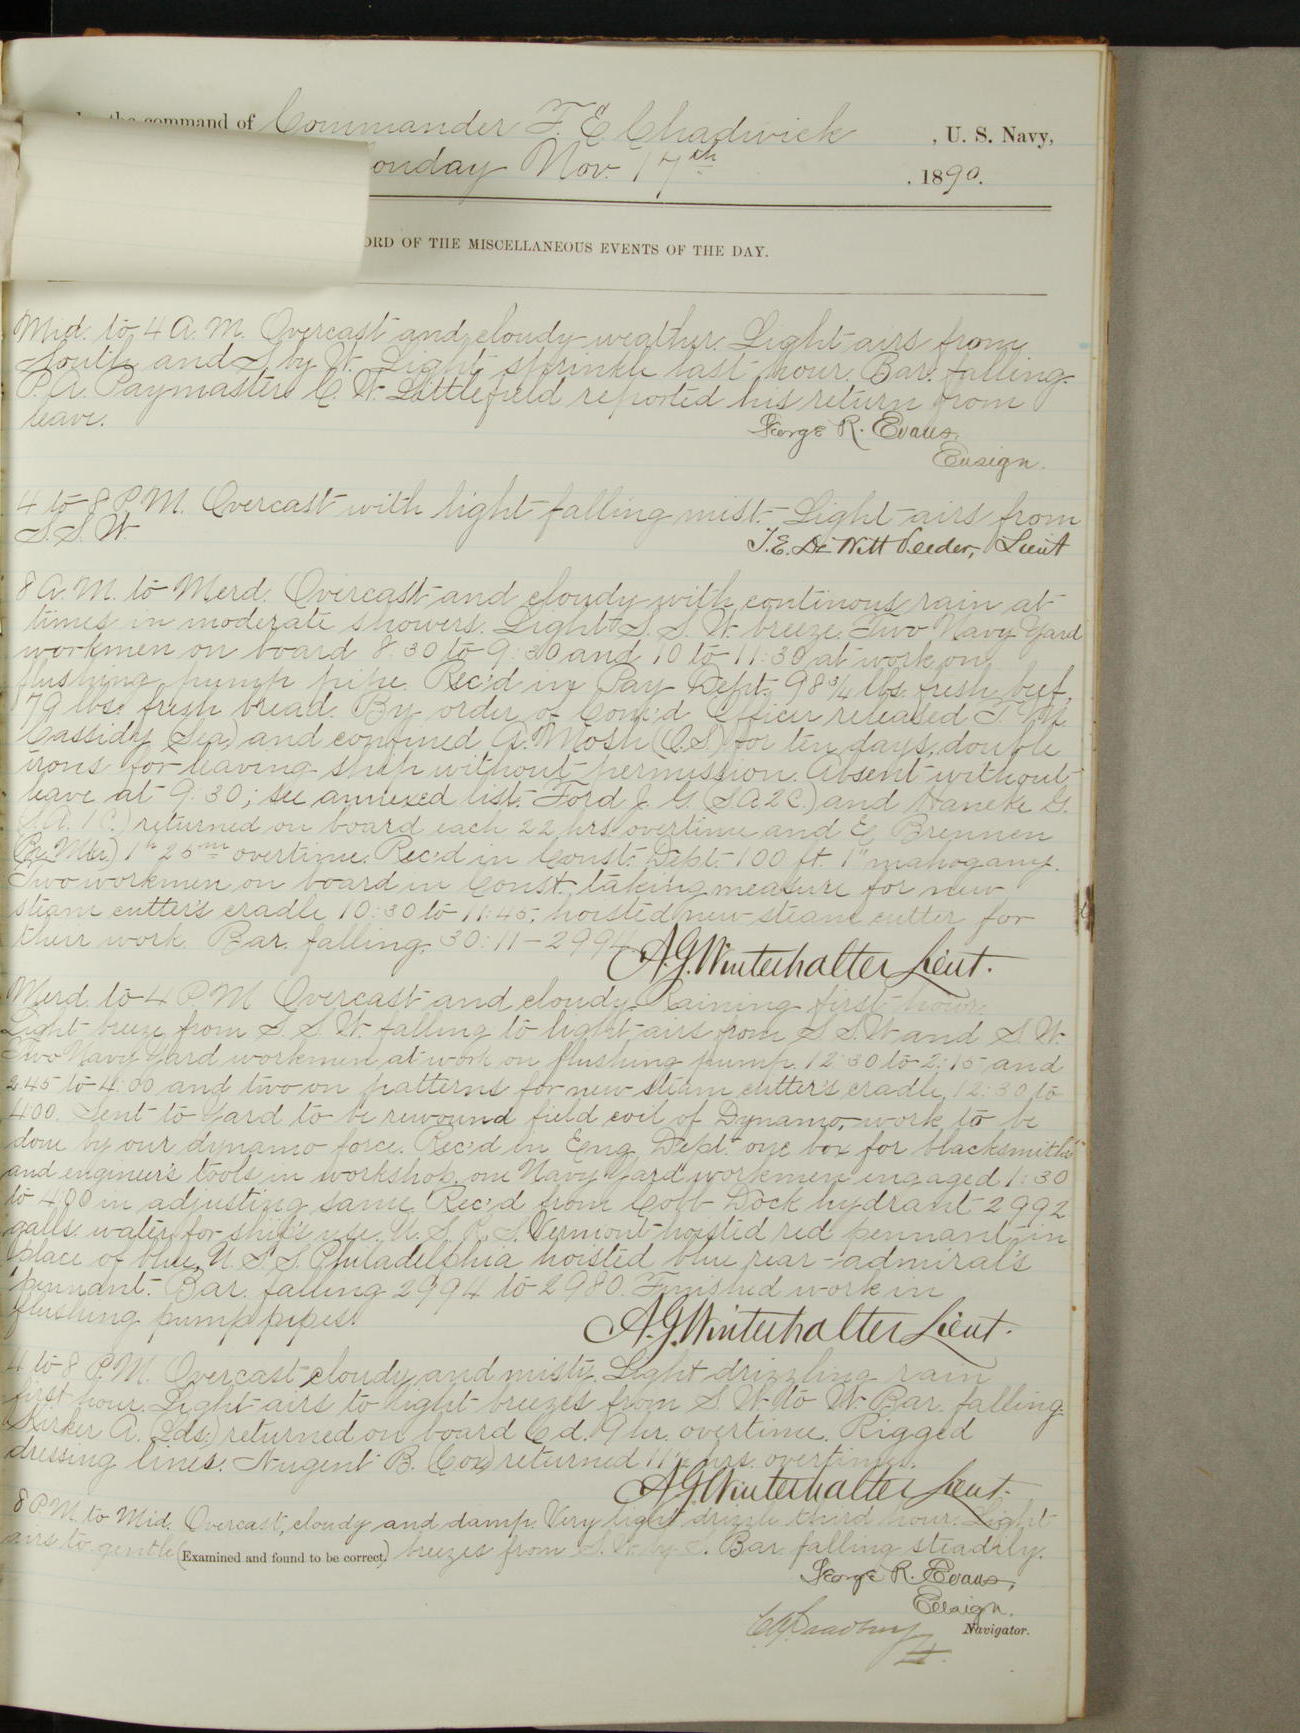 the command of Commander F. E. Chadwick , U. S. Navy,
onday Nov. 17th , 1890.
ORD OF THE MISCELLANEOUS EVENTS OF THE DAY.
Mid. to 4 A.M. Overcast and cloudy weather. Light airs from
South and S by W. Light sprinkle last hour. Bar. falling.
P.A. Paymaster C. W. Littlefield reported his return from
leave.
George R. Evans,
Ensign.
4 to 8 P.M. Overcast with light falling mist. Light airs from
S.S.W.
T.E. De Witt Veeder, Lieut
8 A.M. to Merd. Overcast and cloudy with continous rain at
times in moderate showers. Light S. S. W. breeze. Two Navy Yard
workmen on board 8:30 to 9:30 and 10 to 11:30 at work on
flushing pump pipe. Rec'd in Pay Dept. 98 3/4 lbs. fresh beef,
79 lbs. fresh bread. By order of Com'd'g Officer released
Cassidy (Sea) and confined A. Mosh (O.S.) for ten days, double
irons for leaving ship without permission. Absent without
leave at 9:30; see annexed list. Ford J. G. (S.A.2C.) and Haneke G.
returned on board each 22 hrs overtime and E. Brennen
1h 25m overtime. Rec'd in Const. Dept. 100 ft. 1" mahogany.
Two workmen on board in Const. taking measure for new
steam cutter's cradle 10:30 to 11:45; hoisted new steam cutter for
their work. Bar. falling, 30:11 - 2994.
A.G. Winterhalter Lieut.
Merd. to 4 P.M. Overcast and cloudy. Raining first hour.
Light breeze from S. S. W. falling to light airs from S S.W and S. W.
Two Navy Yard workmen at work on flushing pump 12:30 to 2:15 and
2:45 to 4:00 and two on patterns for new steam cutter's cradle, 12:30 to
4:00. Sent to Yard to be rewound field coil of Dynamo, work to be
done by our dynamo force. Rec'd in Eng. Dept. one box for blacksmith's
and engineer's tools in workshop, one Navy Yard workmen engaged 1:30
to 4:00 in adjusting same. Rec'd from Cobb Dock hydrant 2992
galls. water for ship's use. U. S. R. S. Vermont hoisted red pennant in
place of blue, U. S. S. Philadelphia hoisted blue rear-admiral's
pennant. Bar. falling 2994 to 2980. Finished work in
flushing pump pipes.
A.G. Winterhalter Lieut.
4 to 8 P.M. Overcast cloudy and misty. Light drizzling rain
first hour. Light airs to light breezes from S. W. to W. Bar. falling.
A. (Lds.) returned on board Cd. 9 hr. overtime. Rigged
dressing lines. Nugent B. (Cox) returned 11 1/2 hrs. overtime.
A.G. Winterhalter Lieut.
8 P.M. to Mid. Overcast, cloudy and damp. Very light drizzle third hour. Light
airs to gentle (Examined and found to be correct.) breezes from S. W. by S. Bar. falling steadily.
George R. Evans,
Ensign.
Navigator.